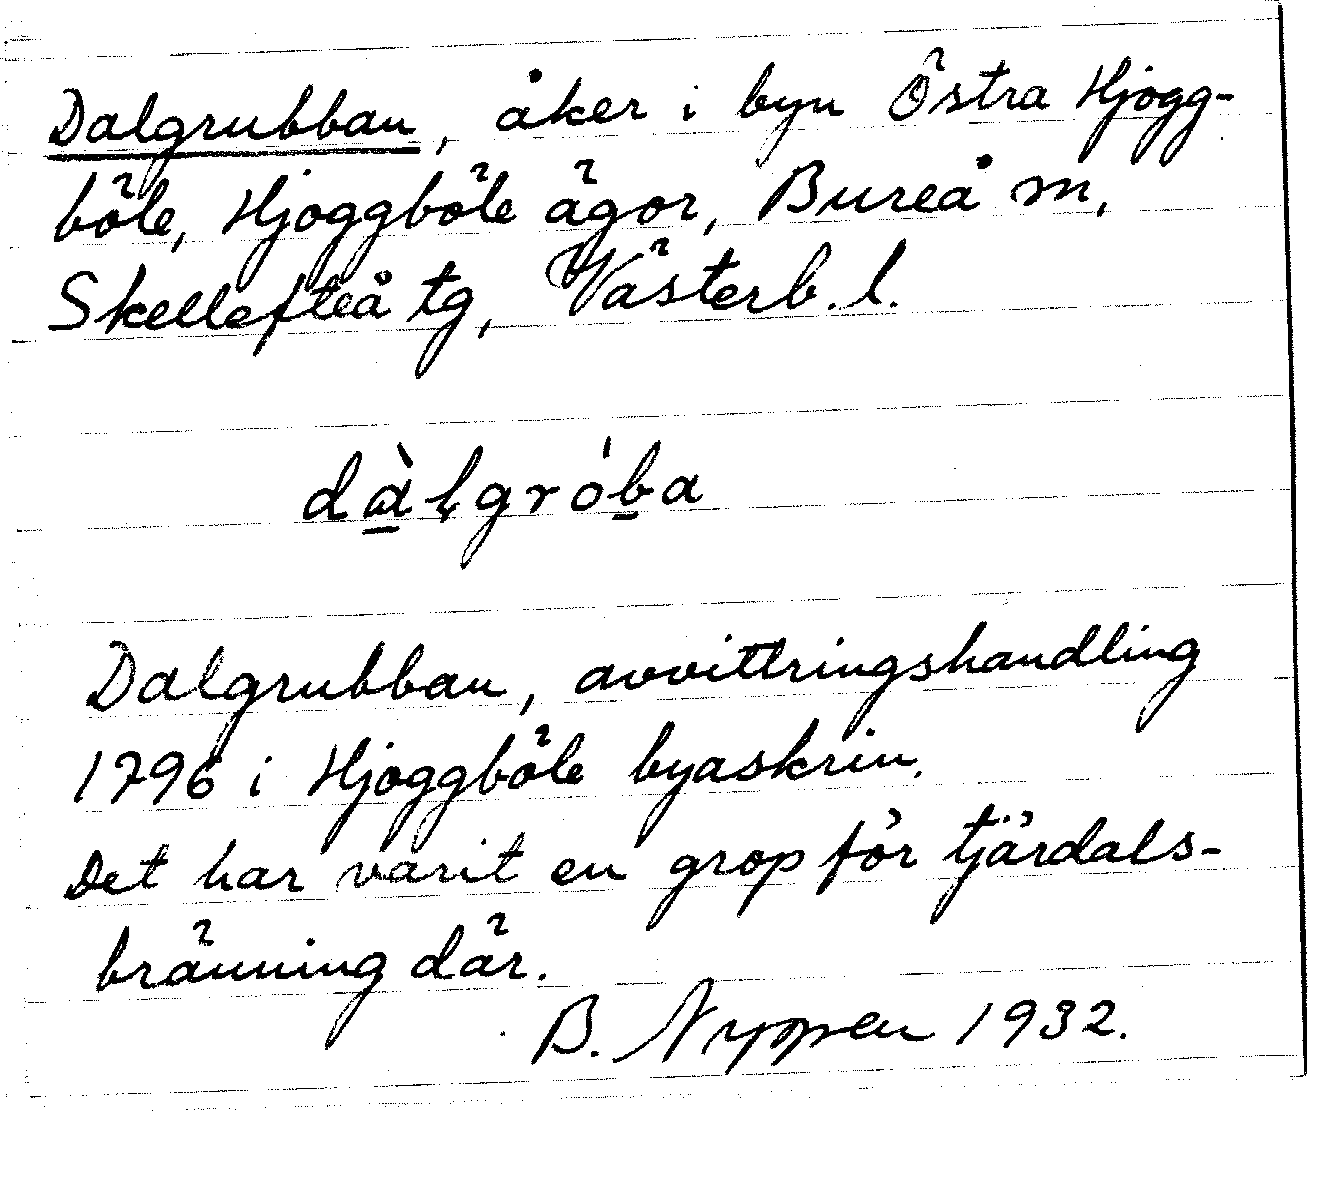 Dalgrubban, åker i byn Östra Hjogg-
böle, Hjoggböle ägor, Bureå m,
Skellefteå tg, Västerb. l.
dà̱ɫgróḇa
Dalgrubban, avvittringshandling
1796 i Hjoggböle byaskrin.
Det har varit en grop för tjärdals-
bränning där.
B. Nyppen 1932.